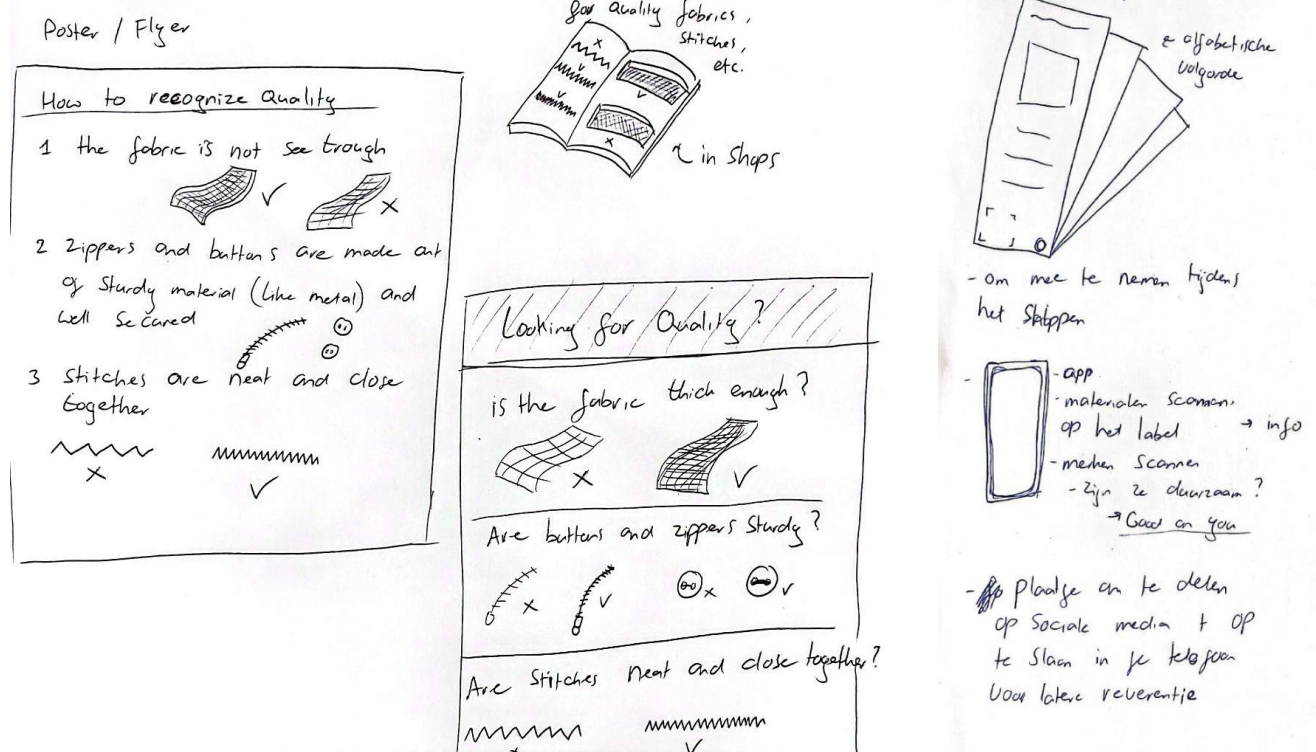 Poster / Flyer
How to recognize Quality
1 the fabric is not see trough
2 Zippers and buttons are made out
of sturdy material (like metal) and
well secured
3 Stitches are neat and close
together
for Quality fabrics,
stitches,
etc.
in shops
Looking for Quality?
is the fabric thick enough?
Are buttons and zippers sturdy?
Are stitches neat and close together?
alfabetische
volgorde
- om mee te nemen tijdens
het shoppen
- app
- materialen scannen
op het label → info
- merken scannen
- zijn ze duurzaam?
→ Good on you
- plaatje om te delen
op sociale media + op
te slaan in je telefoon
voor latere reverentie